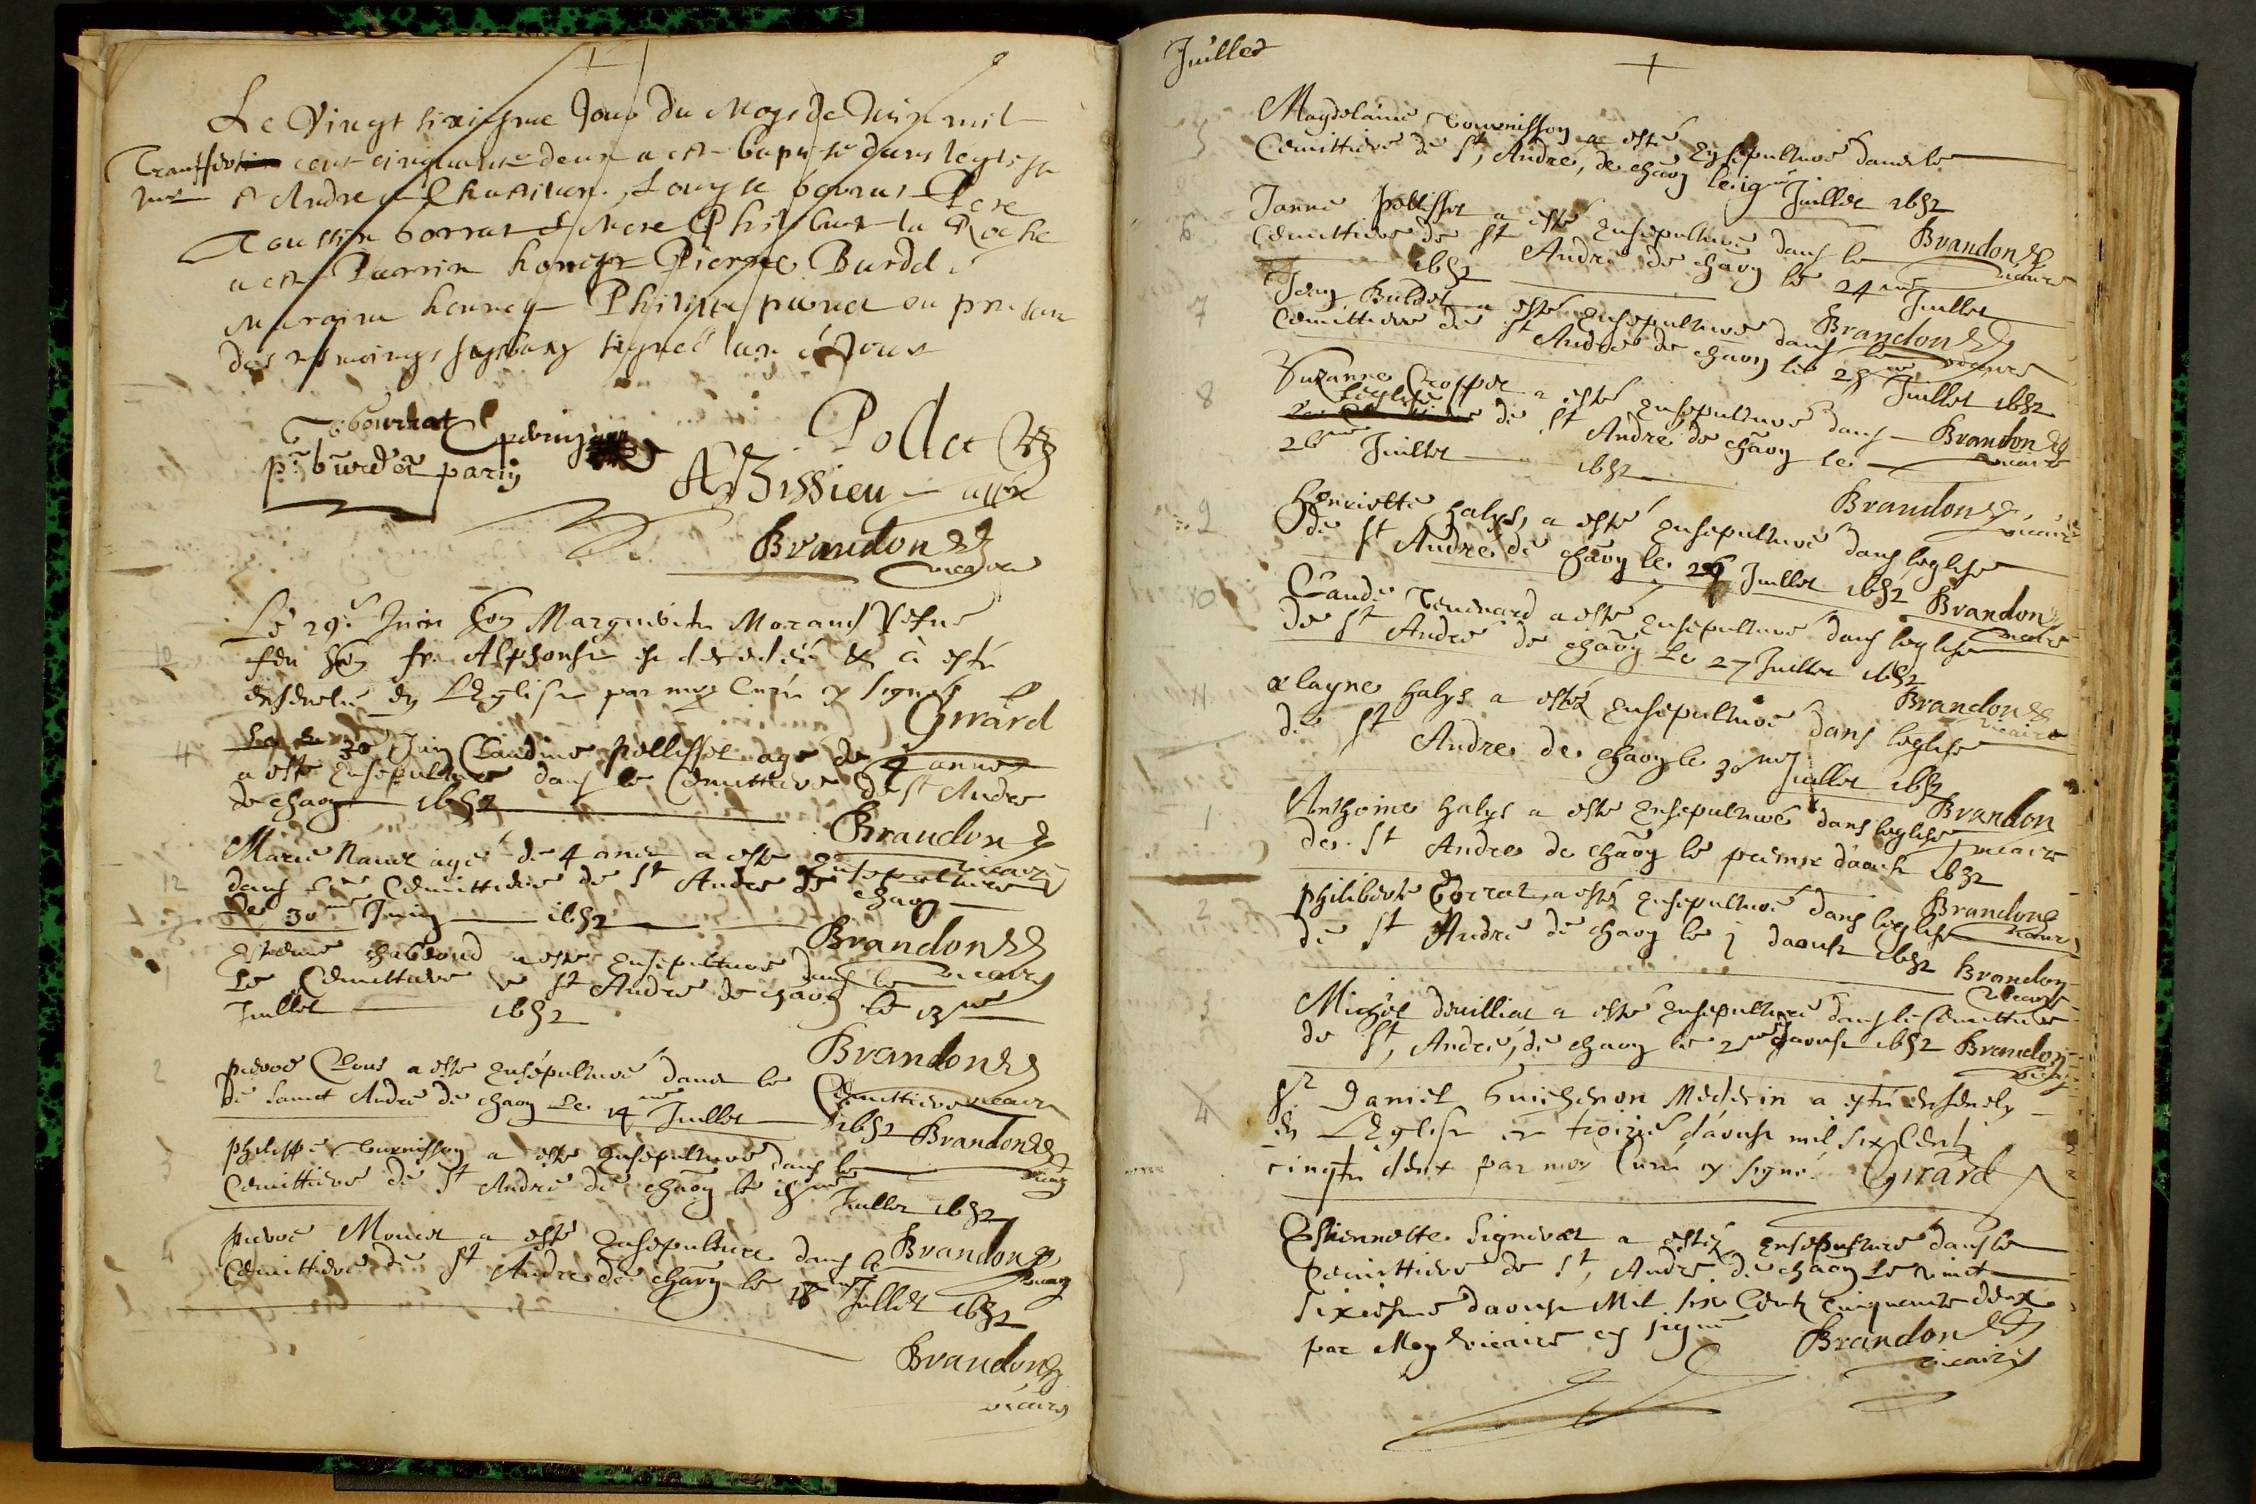 Le Vingt sixiesme Jour du Moys de Juin mil
cent cinquante deux a esté baptisé dans leglise
St Andre Chastillon Louyse borrat Pere
Toussin borrat & Mere Philiberte la Roche
a esté Parrin honeste Pierre Burdet
Maraine honneste Philiberte en presence
des tesmoings soubsignes lan & Jour
bourrat
pr burdet parin
Pollet
Bissieu
Brandon
vicaire
Le 29e Juin Marguerite Morand Vefve
feu Alphonse est decedée & à esté
ensevelie en L'Eglise par moy Curé sy signé
Girard
30 Juin Claudine pollisset age de 4 annes
a esté ensepulturé dans le Cemittiere de St Andre
de chaon 1652
Brandon
vicaire
Marie Navet agé de 4 annes a esté ensepulturé
dans le Cemittiere de St Andre de chaon
Le 30me Juin 1652
Brandon
vicaire
a esté ensepulturé dans le
Le Cemittiere de St Andre de chaon le 13me
Juillet 1652
Brandon
vicaire
pierre Clous a esté ensepulturé dans le Cemittiere
de Sainct Andre de chaon Le 14me Juillet 1652 Brandon
vicaire
philippe Turnisson a esté ensepulturé dans le
Cemittiere de St Andre de chaon le 15me Juillet 1652
Brandon
vicaire
pierre Monet a esté ensepulturé dans le
Cemittiere de St Andre de chaon le 18me Juillet 1652
Brandon
vicaire
Juillet
5
Magdelaine Tournisson a esté ensepulturé dans le
Cemittiere de St Andre de chaon le 19me Juillet 1652
Brandon
vicaire
6
Janne pollisset a esté ensepulturé dans le
Cemittiere de St Andre de chaon le 24me Juillet
1652
Brandon
vicaire
7
Jean Burdet a esté ensepulturé dans le
Cemittiere de St Andre de chaon le 25me Juillet 1652
Brandon
vicaire
8
Suzanne Crosset a esté ensepulturé dans
Leglise de St Andre de chaon le
26me Juillet 1652
Brandon
vicaire
9
Henriette halys a esté ensepulturé dans leglise
de St Andre de chaon le 26 Juillet 1652
Brandon
vicaire
10
Claude Tenenard a esté ensepulturé dans leglise
de St Andre de chaon Le 27 Juillet 1652
Brandon
vicaire
11
Clayne halys a estéz ensepulturé dans leglise
de St Andre de chaon le 30me Juillet 1652
Brandon
vicaire
1
Anthoine halys a esté ensepulturé dans leglise
de St Andre de chaon le premier daoust 1652
Brandon
vicaire
2
philiberte Borrat a esté ensepulturé dans leglise
de St Andre de chaon le j daoust 1652
Brandon
vicaire
3
Michel douilliat a esté ensepulturé dans le Cemittiere
de St Andre de chaon le 2me daoust 1652 Brandon
4
Sr Daniel Guichenon Medecin a esté ensevely
en L'Eglise ce troizie d'aoust mil six Cent
cinqte deux par moy Curé sy signé. Girard
Estiennette Signeret a estéz ensepulturé dans le
Cemittiere de St Andre de chaon Le vinct
sixiesme daoust Mil six Centz Cinquante deux
par Moy vicaire cy signé Brandon
vicaire